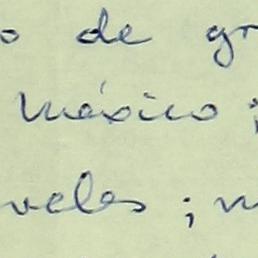 o de gr
México;
veles; m